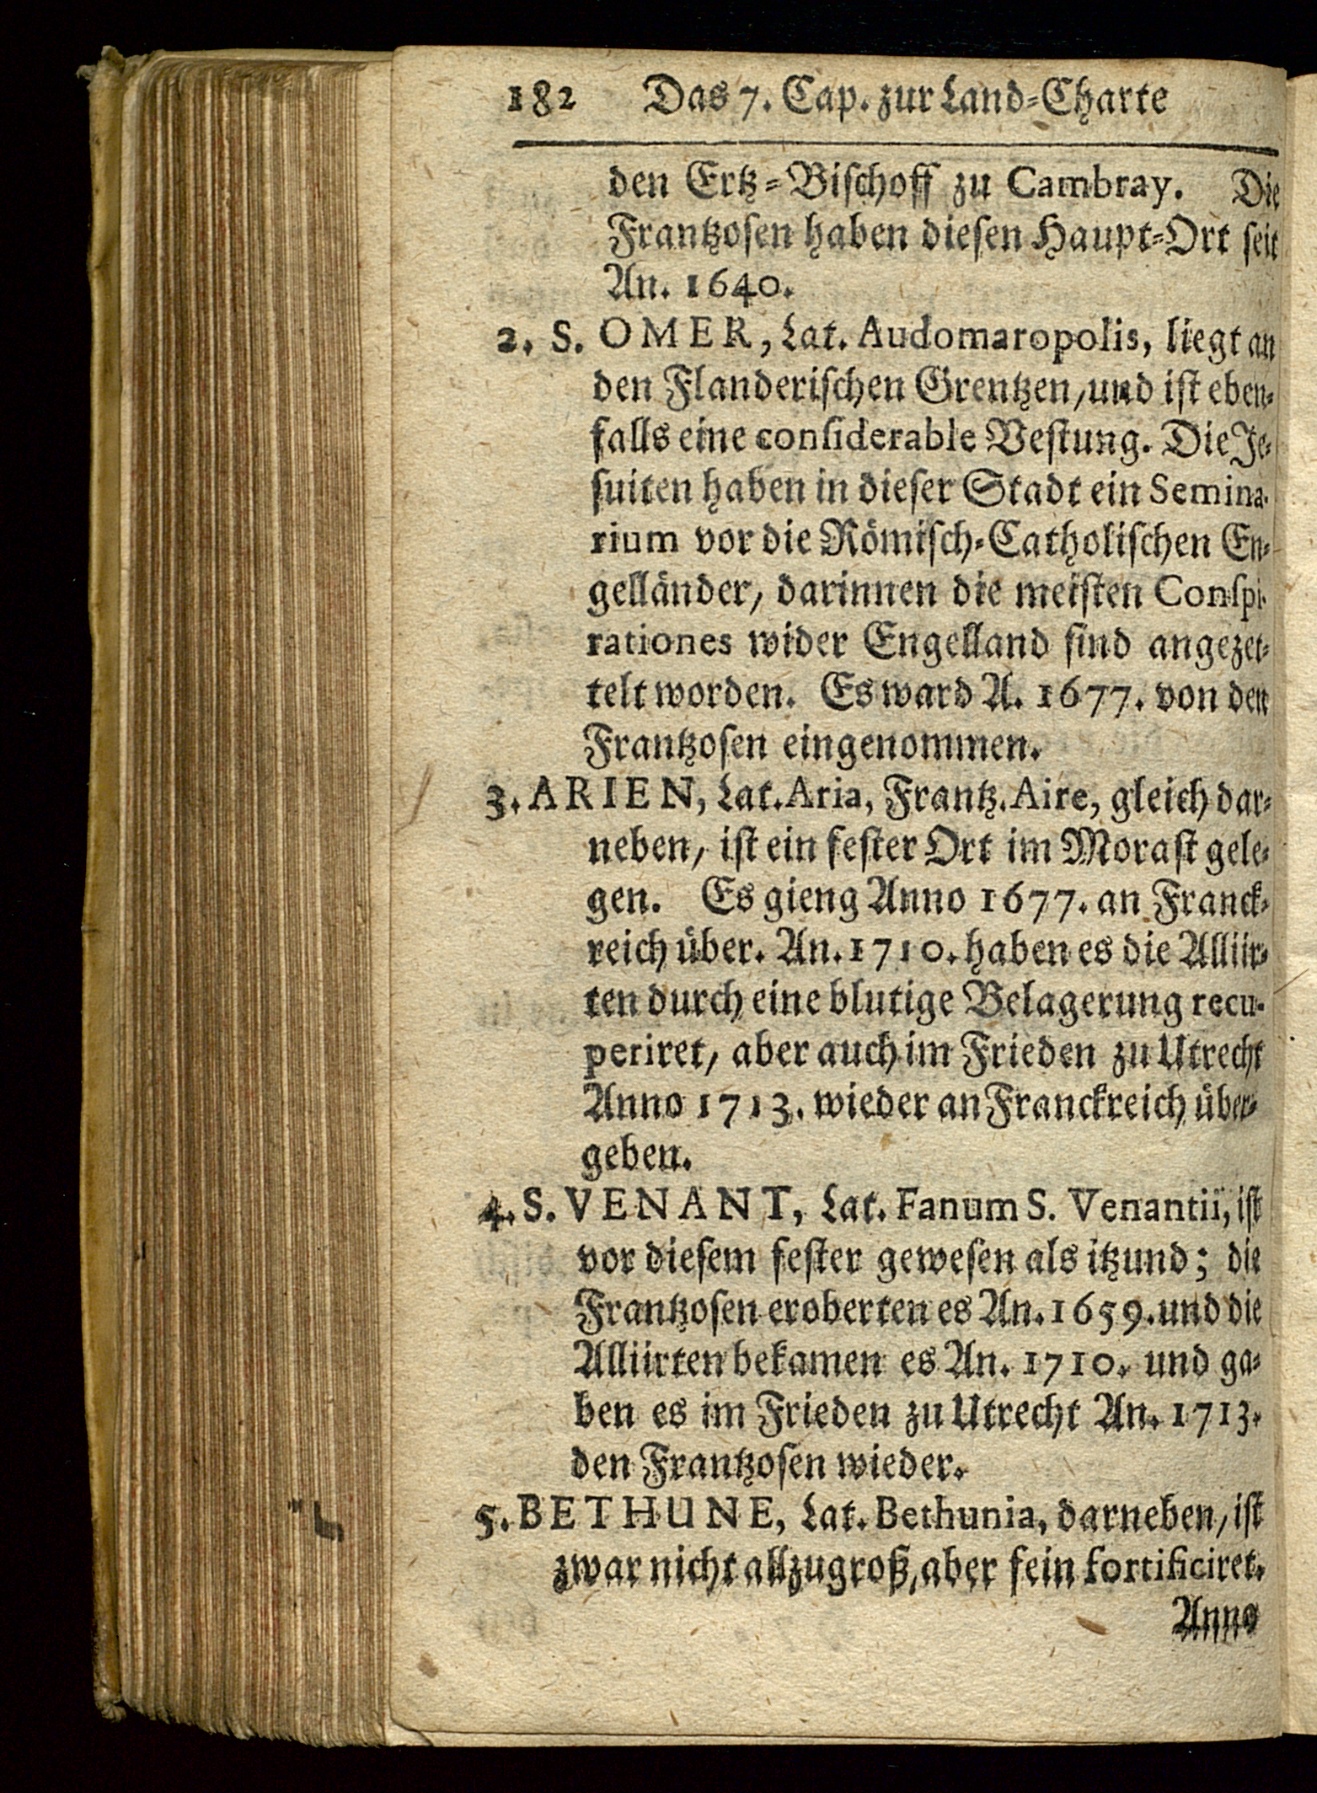 182 Das 7. Cap. zur Land-Charte
den Ertz-Bischoff zu Cambray. Die
Frantzosen haben diesen Haupt-Ort seit
An. 1640.
2. S. OMER, Lat. Audomaropolis, liegt an
den Flanderischen Grentzen/und ist eben-
falls eine considerable Vestung. Die Je-
suiten haben in dieser Stadt ein Semina-
rium vor die Römisch-Catholischen En-
gelländer/ darinnen die meisten Conspi-
rationes wider Engelland sind angezet-
telt worden. Es ward A. 1677. von den
Frantzosen eingenommen.
3. ARIEN, Lat. Aria, Frantz. Aire, gleich dar-
neben/ ist ein fester Ort im Morast gele-
gen. Es gieng Anno 1677. an Franck-
reich über. An. 1710. haben es die Alliir-
ten durch eine blutige Belagerung recu-
periret/ aber auch im Frieden zu Utrecht
Anno 1713. wieder an Franckreich über-
geben.
4. S. VENANT, Lat. Fanum S. Venantii, ist
vor diesem fester gewesen als itzund; die
Frantzosen eroberten es An. 1659. und die
Alliirten bekamen es An. 1710. und ga-
ben es im Frieden zu Utrecht An. 1713.
den Frantzosen wieder.
5. BETHUNE, Lat. Bethunia, darneben/ ist
zwar nicht allzugroß/aber fein fortificiret.
Anno